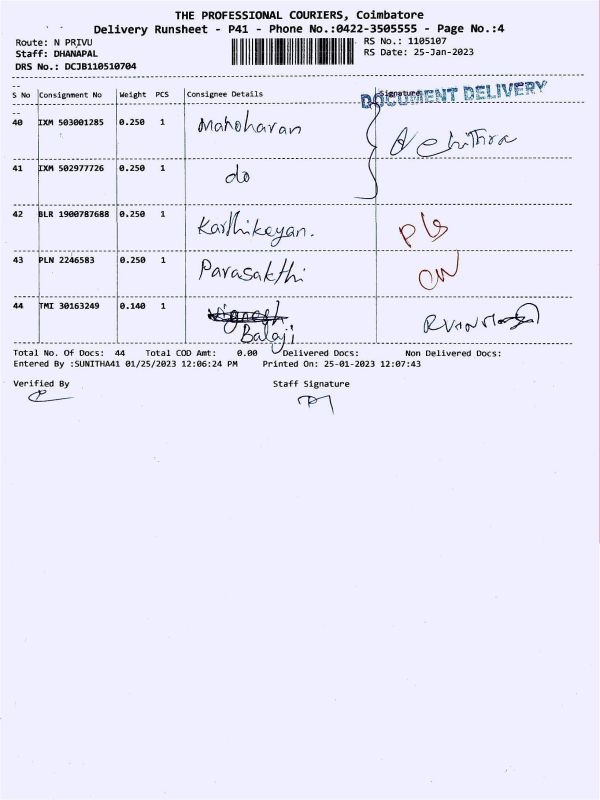 THE PROFESSIONAL COURIERS, Coimbatore
Delivery Runsheet - P41 - Phone No.:0422-3505555 - Page No.:4
Route: N PRIVU
RS No.: 1105107
Staff: DHANAPAL
RS Date: 25-Jan-2023
DRS No.: DCJB110510704
S No Consignment No Weight PCS Consignee Details Signature
DOCUMENT DELIVERY
40 IXM 503001285 0.250 1 Manoharan
41 IXM 502977726 0.250 1 do
42 BLR 1900787688 0.250 1 Karthikeyan.
43 PLN 2246583 0.250 1 Parasakthi
44 TMI 30163249 0.140 1 Vignesh
Balaji
Total No. Of Docs: 44 Total COD Amt: 0.00 Delivered Docs: Non Delivered Docs:
Entered By :SUNITHA41 01/25/2023 12:06:24 PM Printed On: 25-01-2023 12:07:43
Verified By Staff Signature